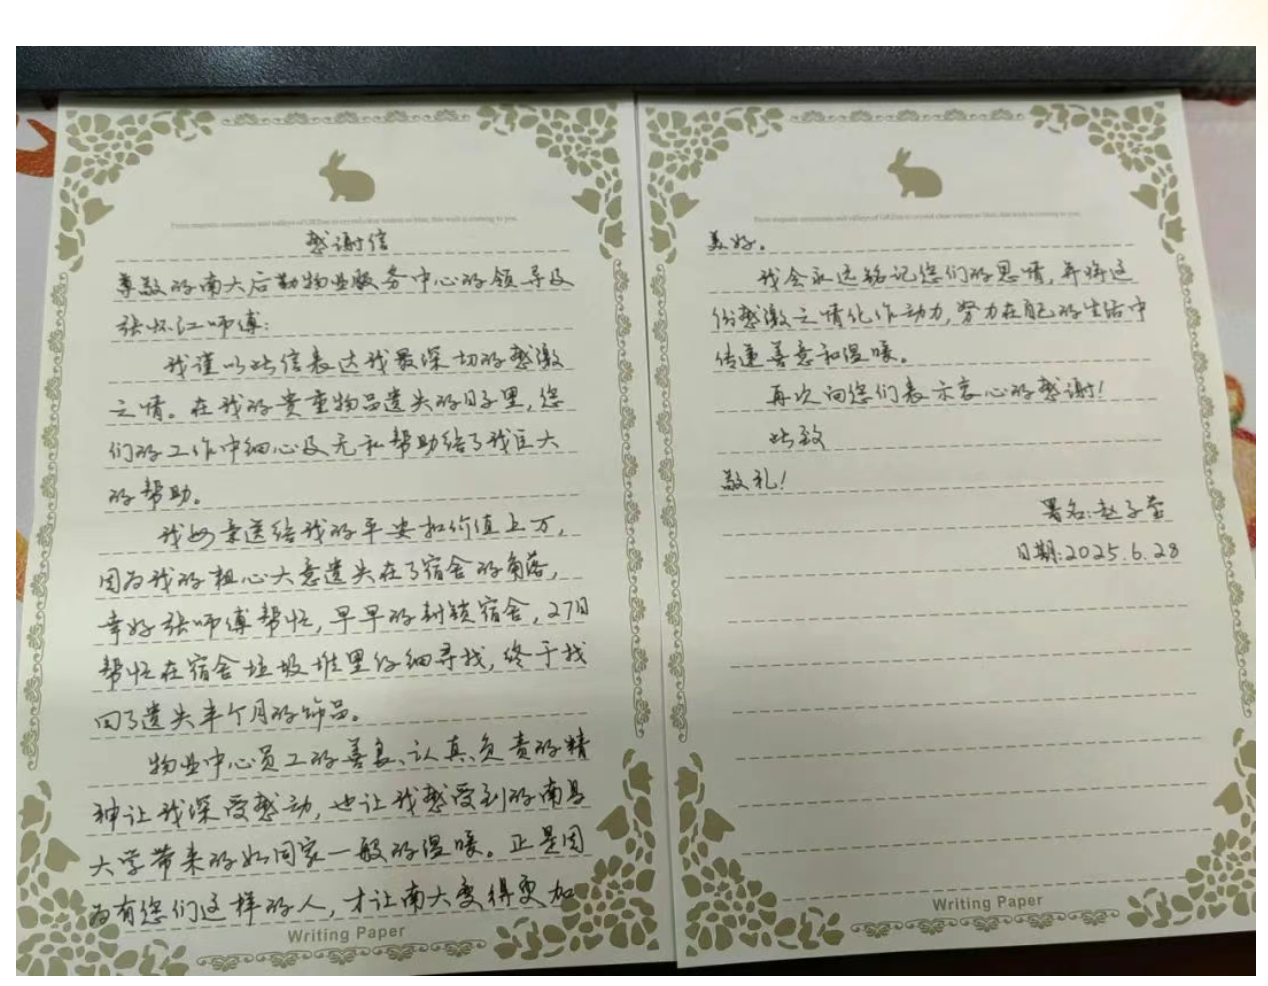 感谢信
尊敬的南大后勤物业服务中心的领导及
张怀江师傅：
我谨以此信表达我最深切的感激
之情。在我的贵重物品遗失的日子里，您
们的工作中细心及无私帮助给了我巨大
的帮助。
我母亲送给我的平安扣价值上万，
因为我的粗心大意遗失在了宿舍的角落，
幸好张师傅帮忙，早早的封锁宿舍，27日
帮忙在宿舍垃圾堆里仔细寻找，终于找
回了遗失半个月的饰品。
物业中心员工的善良、认真、负责的精
神让我深受感动，也让我感受到的南昌
大学带来的如同家一般的温暖。正是因
为有您们这样的人，才让南大变得更加
Writing Paper
美好。
我会永远铭记您们的恩情，并将这
份感激之情化作动力，努力在自己的生活中
传递善意和温暖。
再次向您们表示衷心的感谢！
此致
敬礼！
署名：赵子莹
日期：2025.6.28
Writing Paper